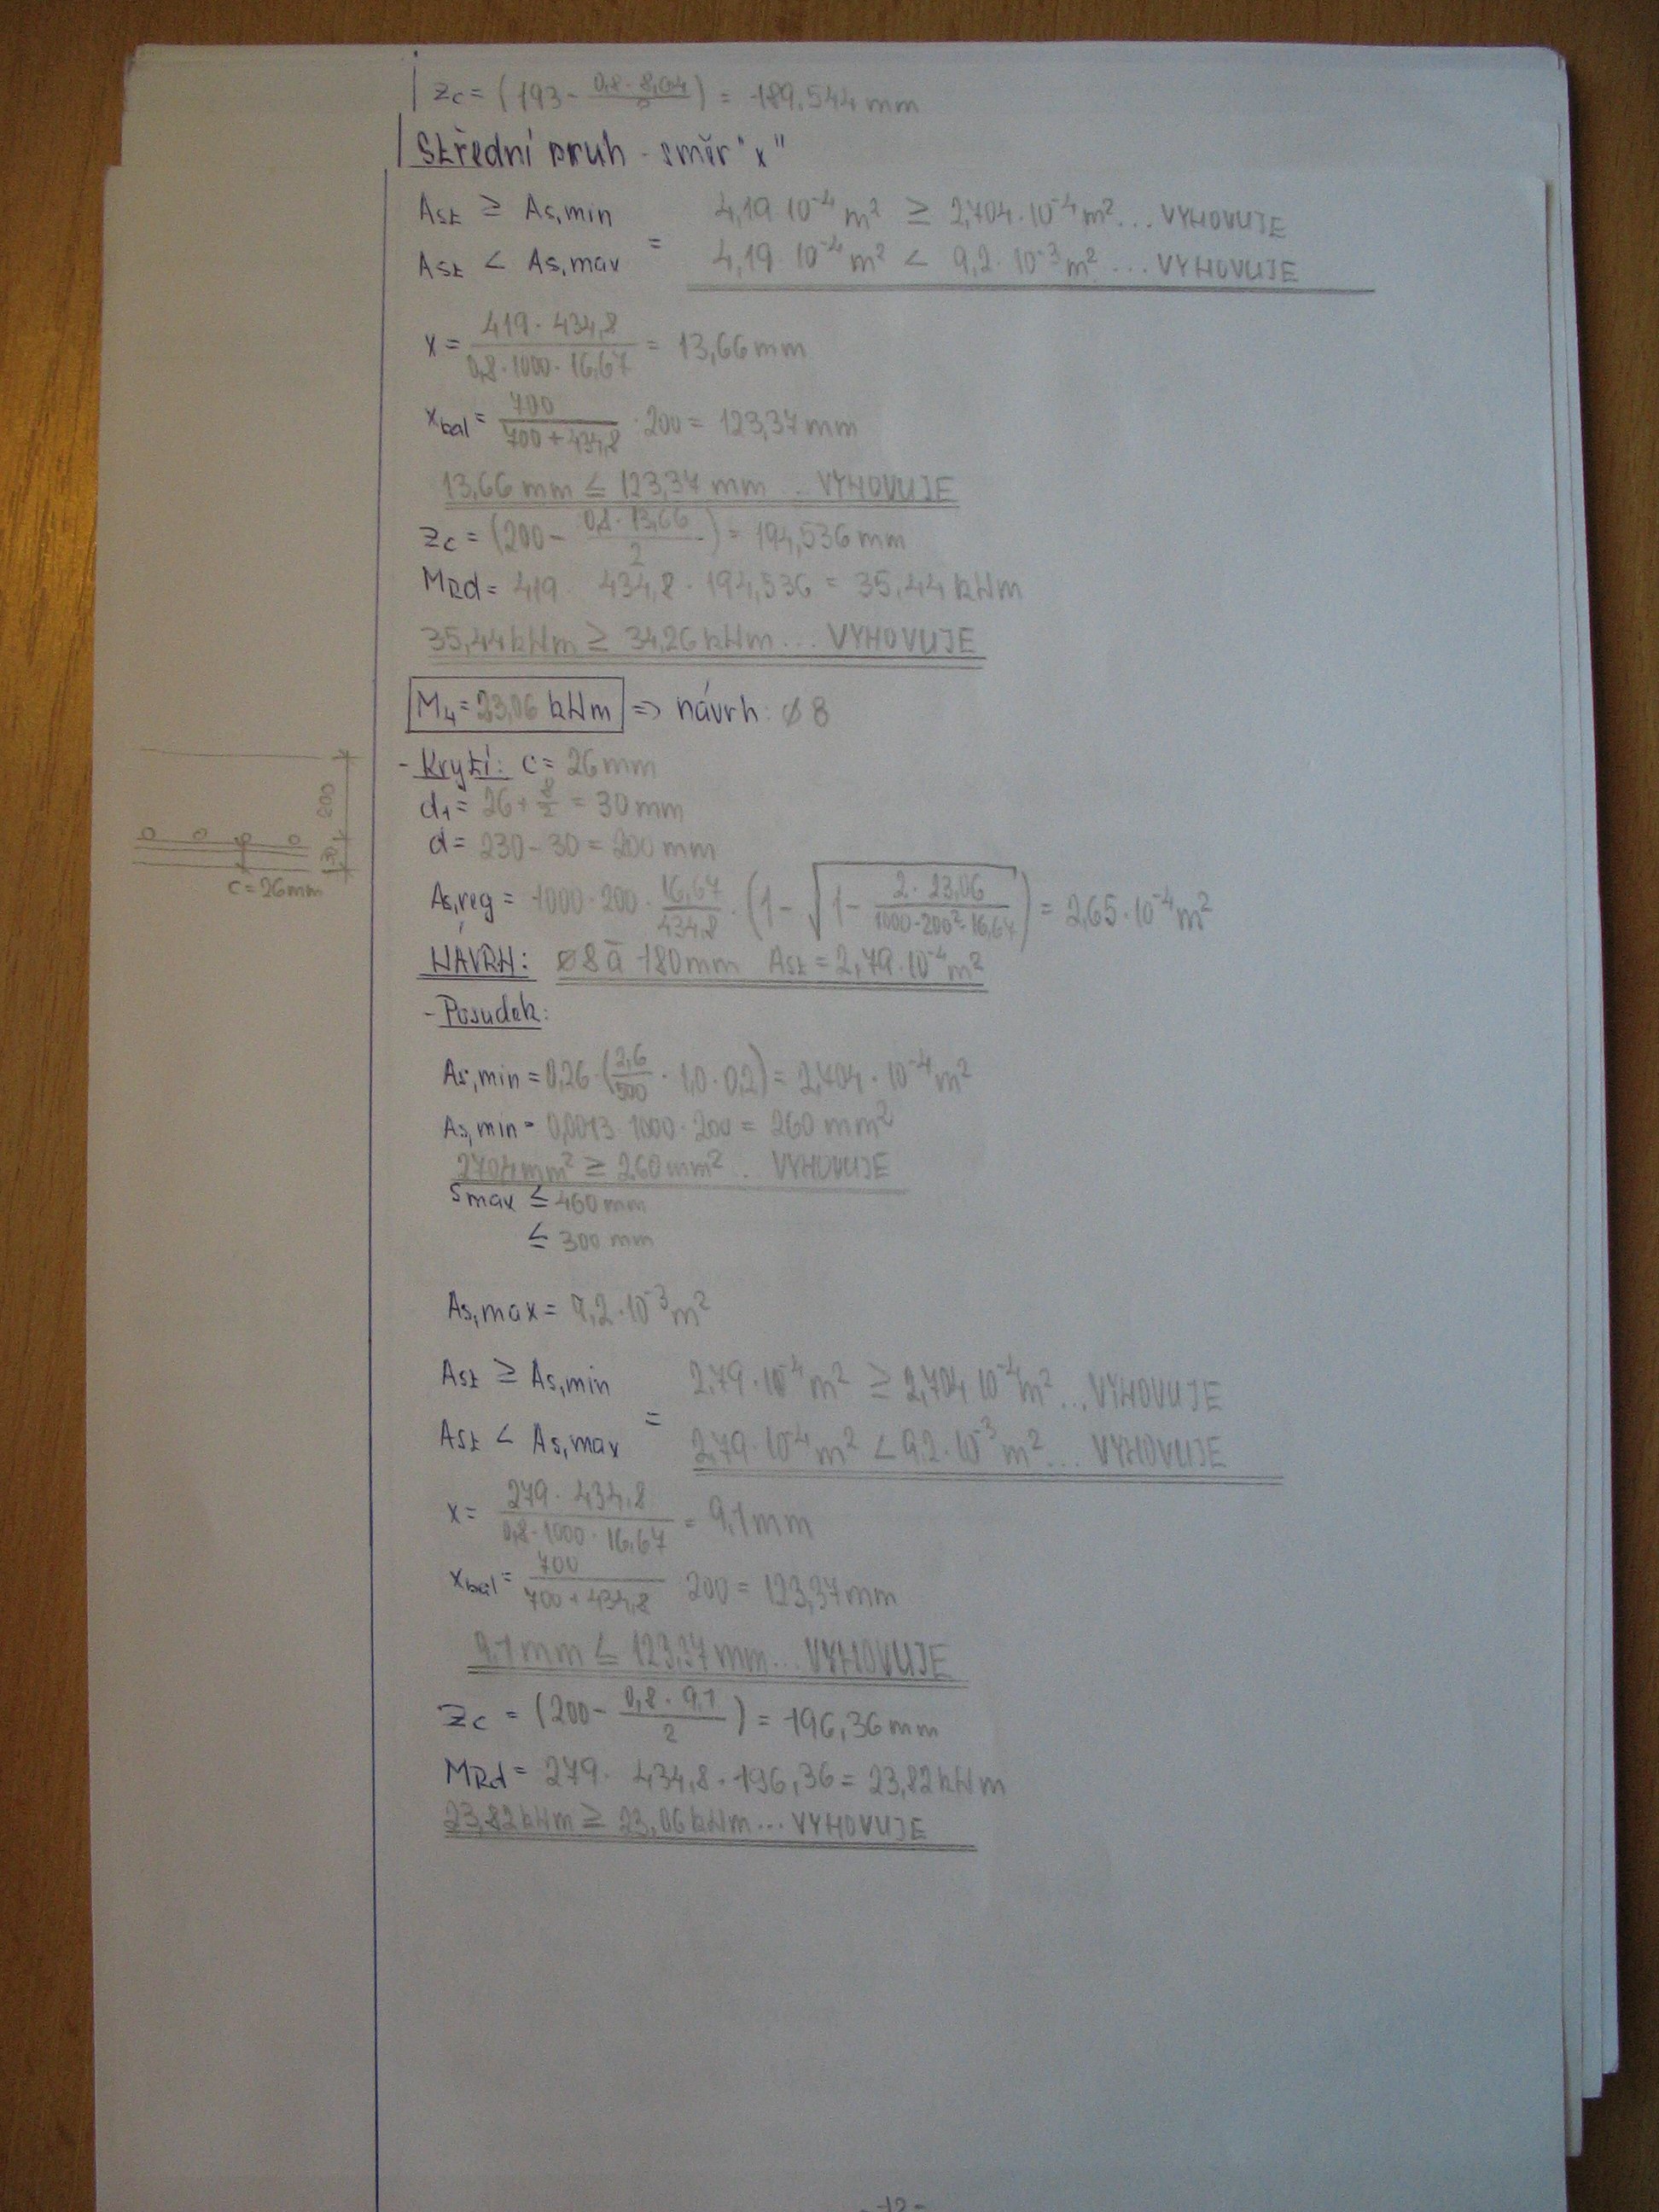 zc = (193 - 0,8 · 8,64 / 2) = 189,544 mm
Střední pruh - směr "x"
Ast ≥ As,min = 4,19 10⁻⁴ m² ≥ 2,704 · 10⁻⁴ m² ... VYHOVUJE
Ast < As,max 4,19 · 10⁻⁴ m² < 9,2 · 10⁻³ m² ... VYHOVUJE
x = 419 · 434,8 / 0,8 · 1000 · 16,67 = 13,66 mm
xbal = 700 / 700 + 434,8 · 200 = 123,37 mm
13,66 mm ≤ 123,37 mm ... VYHOVUJE
zc = (200 - 0,8 · 13,66 / 2) = 194,536 mm
MRd = 419 · 434,8 · 194,536 = 35,44 kNm
35,44 kNm ≥ 34,26 kNm ... VYHOVUJE
M4 = 23,06 kNm => návrh: ø 8
- Krytí: c = 26 mm
d1 = 26 + 8/2 = 30 mm
d = 230 - 30 = 200 mm
200
30
c = 26 mm
As,reg = 1000 · 200 · 16,67 / 434,8 · (1 - √(1 - 2 · 23,06 / 1000 · 200² · 16,67)) = 2,65 · 10⁻⁴ m²
NÁVRH: ø 8 ā 180 mm Ast = 2,79 · 10⁻⁴ m²
- Posudek:
As,min = 0,26 · (2,6 / 500 · 1,0 · 0,2) = 2,704 · 10⁻⁴ m²
As,min = 0,0013 · 1000 · 200 = 260 mm²
270,4 mm² ≥ 260 mm² ... VYHOVUJE
smax ≤ 460 mm
≤ 300 mm
As,max = 9,2 · 10⁻³ m²
Ast ≥ As,min = 2,79 · 10⁻⁴ m² ≥ 2,704 10⁻⁴ m² ... VYHOVUJE
Ast < As,max 2,79 · 10⁻⁴ m² < 9,2 · 10⁻³ m² ... VYHOVUJE
x = 279 · 434,8 / 0,8 · 1000 · 16,67 = 9,1 mm
xbal = 700 / 700 + 434,8 200 = 123,37 mm
9,1 mm ≤ 123,37 mm ... VYHOVUJE
zc = (200 - 0,8 · 9,1 / 2) = 196,36 mm
MRd = 279 · 434,8 · 196,36 = 23,82 kNm
23,82 kNm ≥ 23,06 kNm ... VYHOVUJE
- 12 -